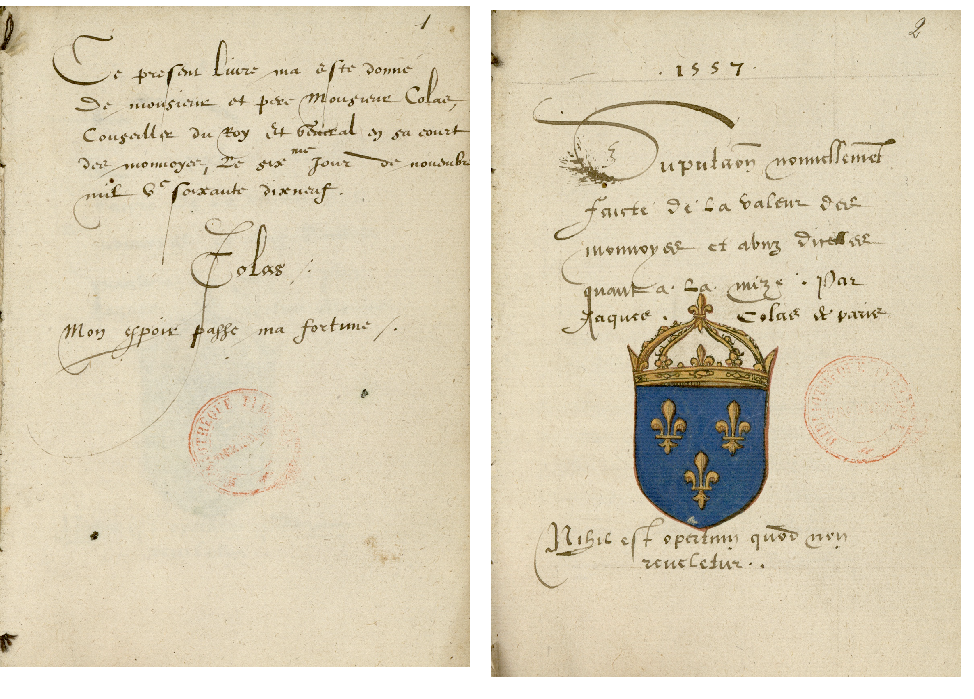 1
Ce present livre ma este donné
De monsieur et pere Monsieur Colas,
Conseiller du Roy Et General en sa court
des monnoyes, Le six me Jour de novembre
mil Vc soixante dixneuf.
Colas
Mon espoir passe ma fortune
2
1557
Suputaõn nouvellement
faicte de La valeur des
monnoyes et abuz dicelles
quant a La mize . Par
Jaques Colas de paris
Nihil est opertum quod non
reveletur . .